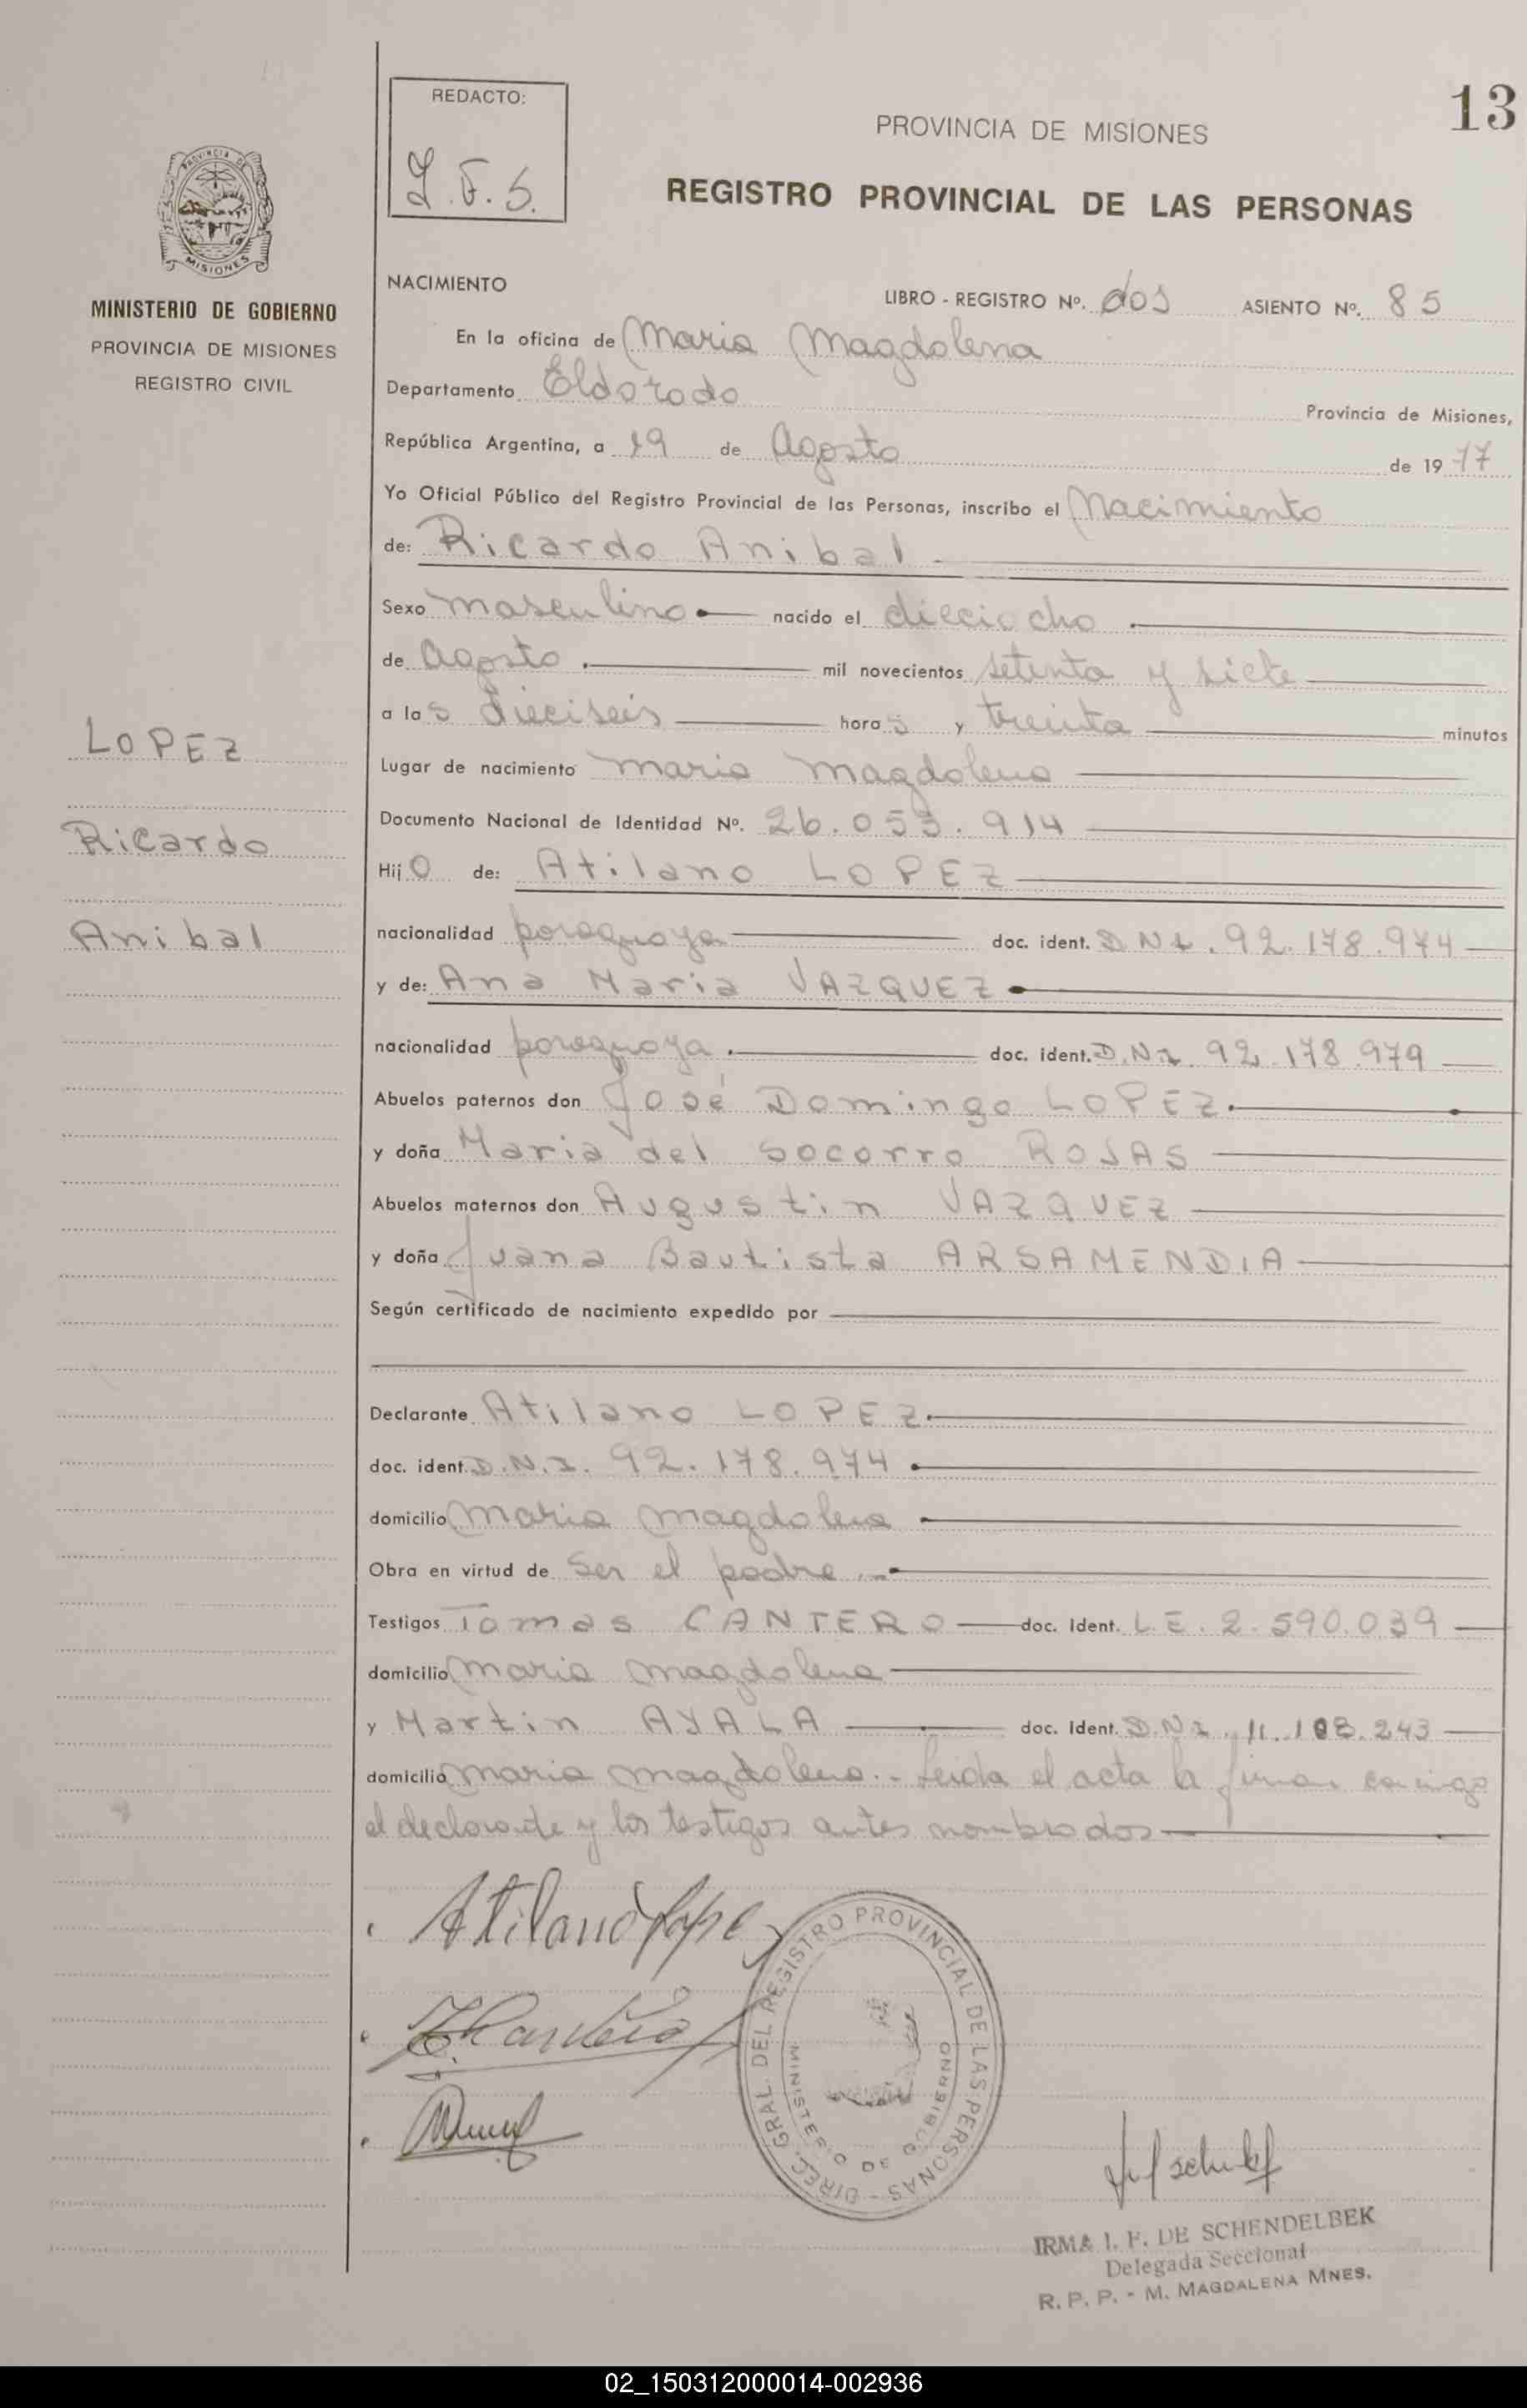 13
REDACTO:
I.F.S.
PROVINCIA DE MISIONES
REGISTRO PROVINCIAL DE LAS PERSONAS
PROVINCIA DE
MISIONES
MINISTERIO DE GOBIERNO
PROVINCIA DE MISIONES
REGISTRO CIVIL
NACIMIENTO LIBRO - REGISTRO Nº. dos ASIENTO Nº. 85
En la oficina de Maria Magdalena
Departamento Eldorado Provincia de Misiones,
República Argentina, a 19 de Agosto de 19 77
Yo Oficial Público del Registro Provincial de las Personas, inscribo el Nacimiento
de: Ricardo Anibal
Sexo masculino nacido el dieciocho
de Agosto mil novecientos setenta y siete
a las dieciseis horas y treinta minutos
LOPEZ
Ricardo
Anibal
Lugar de nacimiento Maria Magdalena
Documento Nacional de Identidad Nº. 26.053.914
Hijo de: Atilano LOPEZ
nacionalidad paraguaya doc. ident. D.N.I. 92.178.974
y de: Ana Maria VAZQUEZ
nacionalidad paraguaya doc. ident. D.N.I. 92.178.979
Abuelos paternos don José Domingo LOPEZ
y doña Maria del Socorro ROJAS
Abuelos maternos don Augustin VAZQUEZ
y doña Juana Bautista ARSAMENDIA
Según certificado de nacimiento expedido por
Declarante Atilano LOPEZ
doc. ident. D.N.I. 92.178.974
domicilio Maria Magdalena
Obra en virtud de ser el padre
Testigos Tomas CANTERO doc. Ident. L.E. 2.590.039
domicilio Maria Magdalena
y Martin AYALA doc. Ident. D.N.I. 11.108.243
domicilio Maria Magdalena.- Leida el acta la firman conmigo
el declarante y los testigos antes nombrados
Atilano Lopez
DIREC. GRAL. DEL REGISTRO PROVINCIAL DE LAS PERSONAS -
MINISTERIO DE GOBIERNO
IRMA I. F. DE SCHENDELBEK
Delegada Seccional
R. P. P. - M. MAGDALENA MNES.
02_150312000014-002936